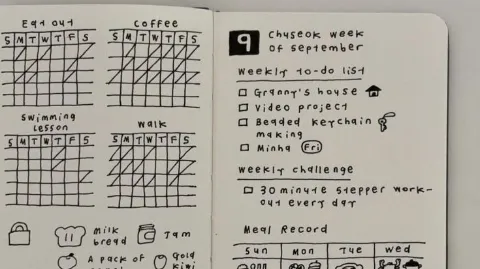 Eat out
S M T W T F S
Coffee
S M T W T F S
Swimming
Lesson
S M T W T F S
Walk
S M T W T F S
Milk
bread
Jam
A pack of
Gold
kiwi
9
Chuseok week
of september
weekly to-do list
Granny's house
Video project
Beaded keychain
making
Minha Fri
weekly challenge
30 minute stepper work-
out every day
Meal Record
Sun Mon Tue Wed